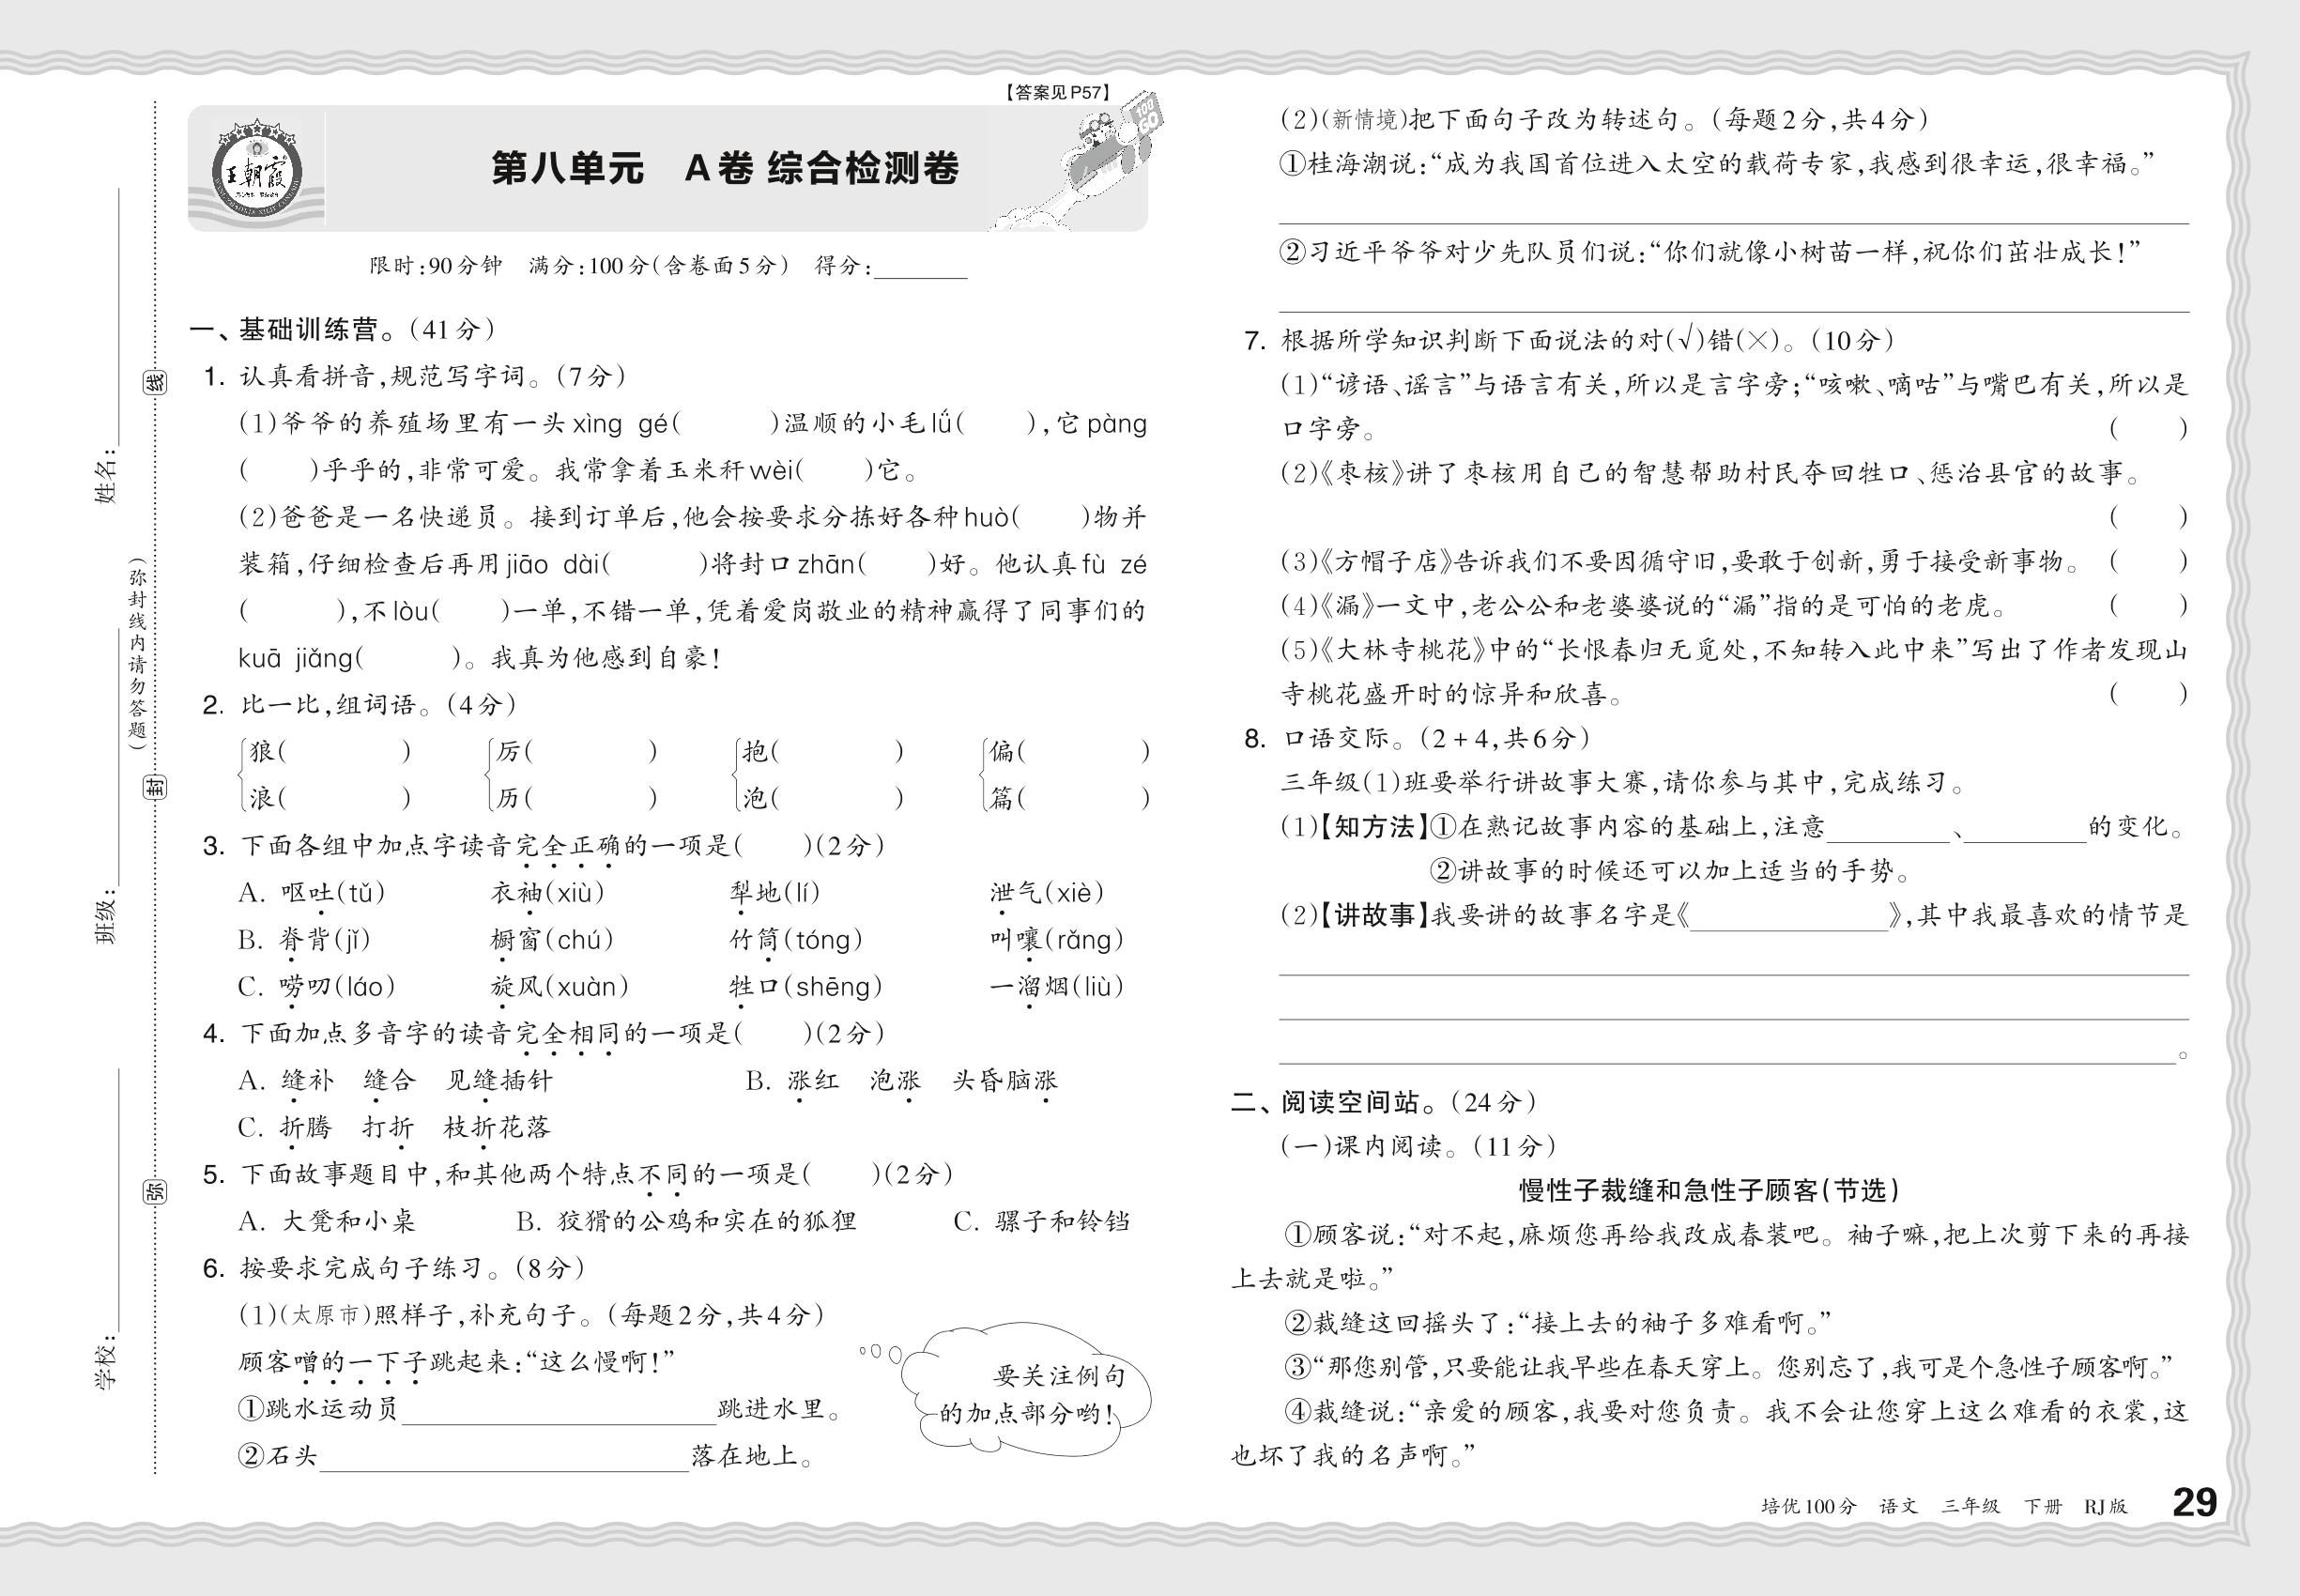 【答案见P57】
王朝霞
100
GO
第八单元 A卷 综合检测卷
限时:90分钟 满分:100分(含卷面5分) 得分:
一、基础训练营。(41分)
1. 认真看拼音,规范写字词。(7分)
(1)爷爷的养殖场里有一头xìng gé( )温顺的小毛lǘ( ),它pàng
( )乎乎的,非常可爱。我常拿着玉米秆wèi( )它。
(2)爸爸是一名快递员。接到订单后,他会按要求分拣好各种huò( )物并
装箱,仔细检查后再用jiāo dài( )将封口zhān( )好。他认真fù zé
( ),不lòu( )一单,不错一单,凭着爱岗敬业的精神赢得了同事们的
kuā jiǎng( )。我真为他感到自豪!
2. 比一比,组词语。(4分)
狼( ) 厉( ) 抱( ) 偏( )
浪( ) 历( ) 泡( ) 篇( )
3. 下面各组中加点字读音完全正确的一项是( )(2分)
A. 呕吐(tǔ) 衣袖(xiù) 犁地(lí) 泄气(xiè)
B. 脊背(jǐ) 橱窗(chú) 竹筒(tóng) 叫嚷(rǎng)
C. 唠叨(láo) 旋风(xuàn) 牲口(shēng) 一溜烟(liù)
4. 下面加点多音字的读音完全相同的一项是( )(2分)
A. 缝补 缝合 见缝插针 B. 涨红 泡涨 头昏脑涨
C. 折腾 打折 枝折花落
5. 下面故事题目中,和其他两个特点不同的一项是( )(2分)
A. 大凳和小桌 B. 狡猾的公鸡和实在的狐狸 C. 骡子和铃铛
6. 按要求完成句子练习。(8分)
(1)(太原市)照样子,补充句子。(每题2分,共4分)
顾客噌的一下子跳起来:“这么慢啊!”
①跳水运动员 跳进水里。
②石头 落在地上。
要关注例句
的加点部分哟!
(2)(新情境)把下面句子改为转述句。(每题2分,共4分)
①桂海潮说:“成为我国首位进入太空的载荷专家,我感到很幸运,很幸福。”
②习近平爷爷对少先队员们说:“你们就像小树苗一样,祝你们茁壮成长!”
7. 根据所学知识判断下面说法的对(√)错(×)。(10分)
(1)“谚语、谣言”与语言有关,所以是言字旁;“咳嗽、嘀咕”与嘴巴有关,所以是
口字旁。 ( )
(2)《枣核》讲了枣核用自己的智慧帮助村民夺回牲口、惩治县官的故事。
( )
(3)《方帽子店》告诉我们不要因循守旧,要敢于创新,勇于接受新事物。 ( )
(4)《漏》一文中,老公公和老婆婆说的“漏”指的是可怕的老虎。 ( )
(5)《大林寺桃花》中的“长恨春归无觅处,不知转入此中来”写出了作者发现山
寺桃花盛开时的惊异和欣喜。 ( )
8. 口语交际。(2+4,共6分)
三年级(1)班要举行讲故事大赛,请你参与其中,完成练习。
(1)【知方法】①在熟记故事内容的基础上,注意 、 的变化。
②讲故事的时候还可以加上适当的手势。
(2)【讲故事】我要讲的故事名字是《 》,其中我最喜欢的情节是
。
二、阅读空间站。(24分)
(一)课内阅读。(11分)
慢性子裁缝和急性子顾客(节选)
①顾客说:“对不起,麻烦您再给我改成春装吧。袖子嘛,把上次剪下来的再接
上去就是啦。”
②裁缝这回摇头了:“接上去的袖子多难看啊。”
③“那您别管,只要能让我早些在春天穿上。您别忘了,我可是个急性子顾客啊。”
④裁缝说:“亲爱的顾客,我要对您负责。我不会让您穿上这么难看的衣裳,这
也坏了我的名声啊。”
培优100分 语文 三年级 下册 RJ版 29
学校: 班级: 姓名:
(弥封线内请勿答题)
弥 封 线